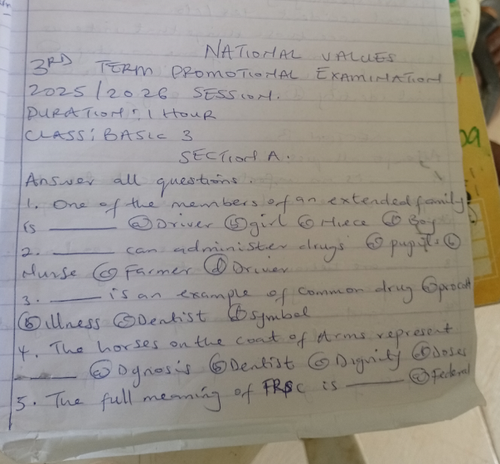 NATIONAL VALUES
3RD TERM PROMOTIONAL EXAMINATION
2025/2026 SESSION.
DURATION: 1 HOUR
CLASS: BASIC 3
SECTION A.
Answer all questions.
1. One of the members of an extended family
is ______ (a) Driver (b) girl (c) Niece (d) Boy
2. ______ can administer drugs (a) pupils (b)
Nurse (c) Farmer (d) Driver
3. ______ is an example of common drug (a)
(b) illness (c) Dentist (d) Symbol
4. The horses on the coat of Arms represent
______ (a) Dgnosis (b) Dentist (c) Dignity (d) Doses
5. The full meaning of FRSC is ______ (a) Federal